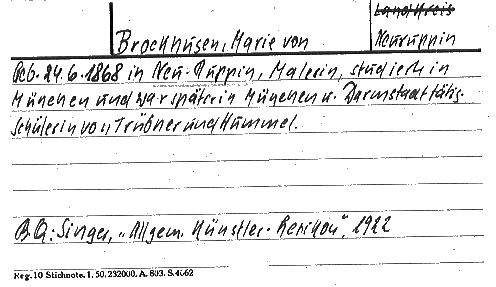 Landkreis
Brockhusen, Marie von Neuruppin
Geb. 24.6.1868 in Neu-Ruppin, Malerin, studierte in
München und war später in München u. Darmstadt tätig.
Schülerin von Trübner und Hummel.
B.Q.: Singer, "Allgem. Künstler-Lexikon", 1922
Reg. 10 Stichnote. 1. 50. 232000. A. 803. S. 4662